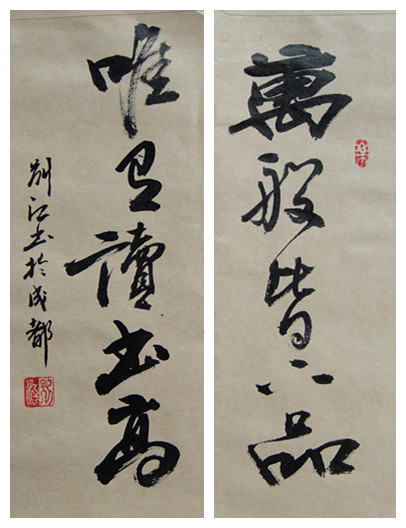 萬般皆下品
唯有讀書高
江書於成都